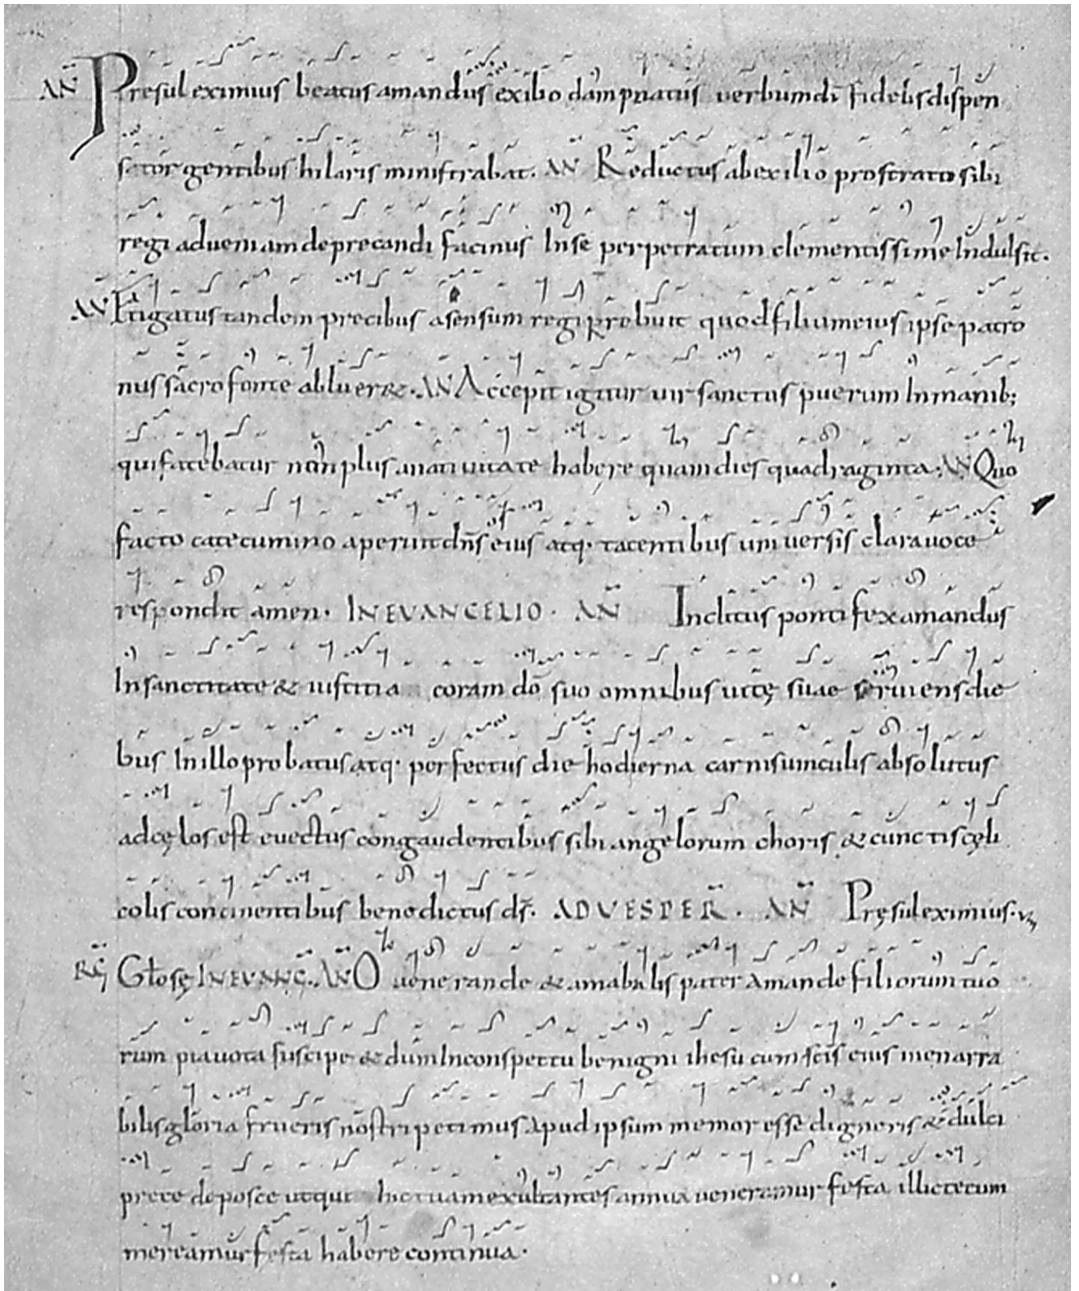 AN Presul eximius beatus amandus exilio dampnatus verbum di fidelis dispen
sator gentibus hilaris ministrabat. AN Reductus ab exilio prostrato sibi
regi ad veniam deprecandi facinus In se perpetratum clementissime Indulsit.
AN Fatigatus tandem precibus asensum regi prebuit quod filium eius ipse patro
nus sacro fonte ablueret. AN Accepit igitur vir sanctus puerum In manib;
qui fatebatur non plus a nativitate habere quam dies quadraginta. AN Quo
facto catecumino aperuit dns eius atq. tacentibus universis clara voce
respondit amen. IN EVANGELIO. AN Inclitus pontifex amandus
In sanctitate & iustitia coram do suo omnibus vitę suae serviens die
bus In illo probatus atq. perfectus die hodierna carnis vinculis absolutus
ad cęlos est evectus congaudentibus sibi angelorum choris & cunctis cęli
colis concinentibus benedictus ds. AD VESPER. AN Pręsul eximius.
Glosę IN EVANG. AN O venerande & amabilis pater Amande filiorum tuo
rum pia vota suscipe & dum In conspectu benigni ihesu cum scis eius inenarra
bilis gloria frueris nostri petimus apud ipsum memor esse digneris & dulci
prece deposce ut qui In c tuam exultantes annua veneramur festa illic tecum
mereamur festa habere continua.